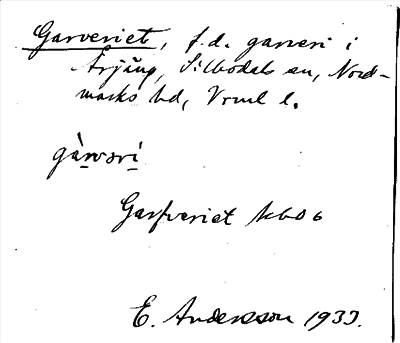 Garveriet, f.d. garveri i
Årjäng, Silbodals sn, Nord-
marks hd, Vrml l.
gàrvəri
Garfveriet kbD6
E. Andersson 1933.